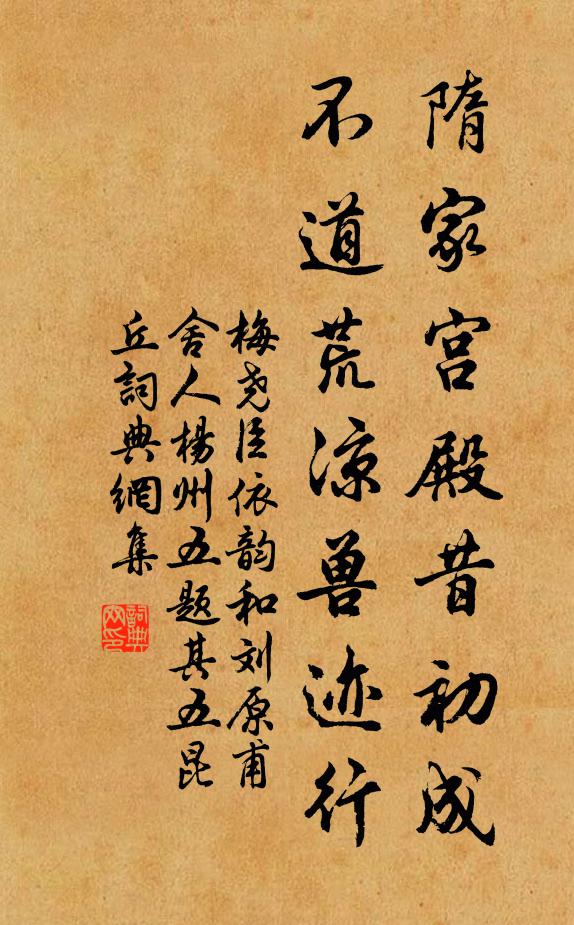 隋家宫殿昔初成
不道荒凉兽迹行
梅尧臣依韵和刘原甫
舍人楊州五题其五昆
丘詞典網集
詞典
网印